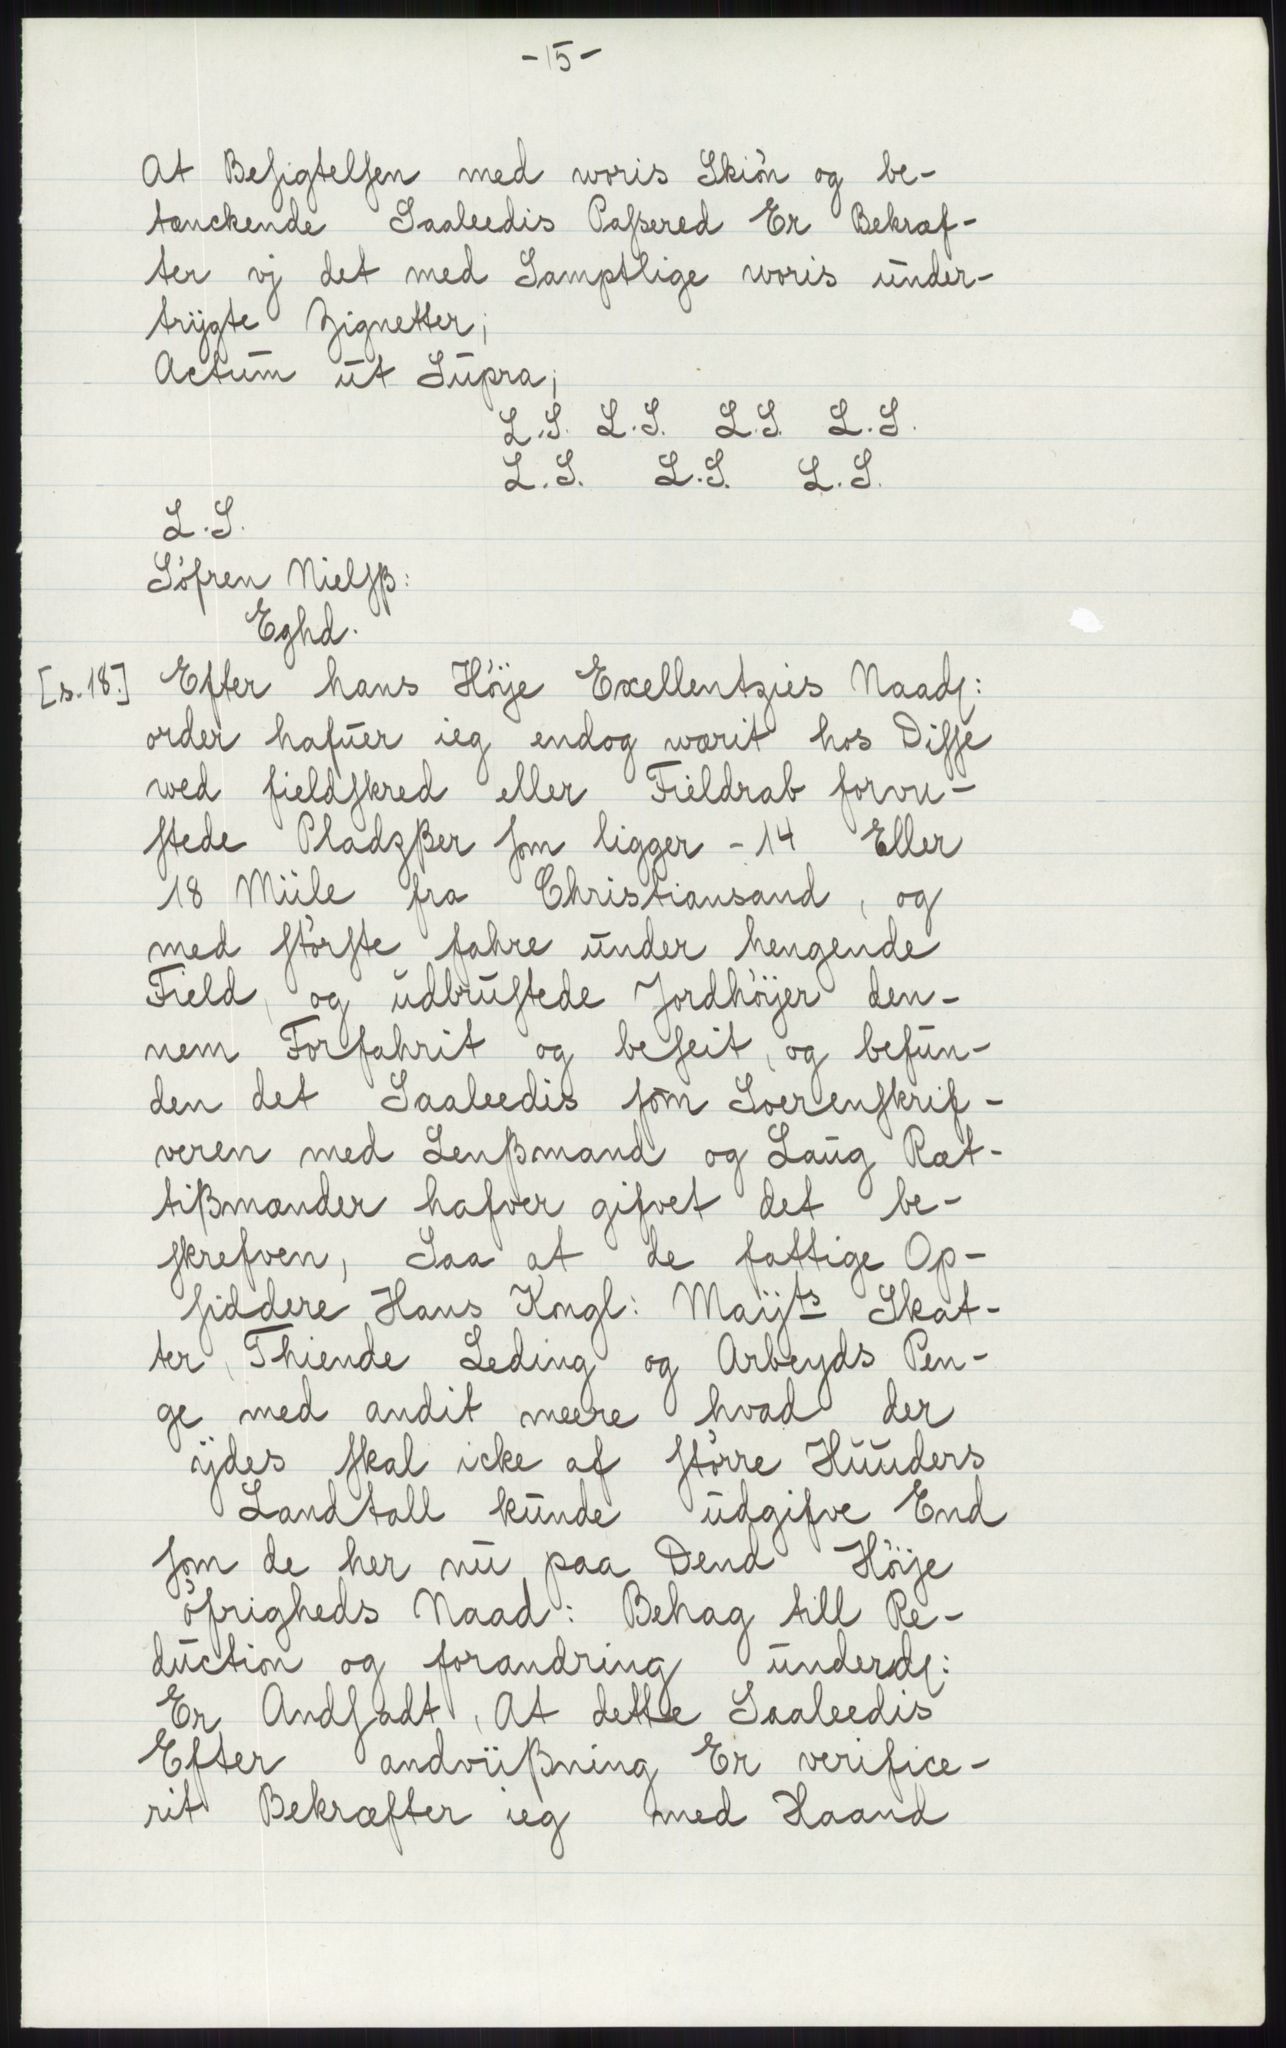 -15-
At Besigtelsen med woris Skiøn og be-
tænckende Saaleedis Passered Er Bekræf-
ter vj det med Samptlige woris under-
trÿgte Zignetter;
Actum ut Supra;
L.S. L.S. L.S. L.S.
L.S. L.S. L.S.
L.S.
Søfren Nielsß:
Eghd.
[s. 18.] Efter hans Høÿe Excellentzies Naads:
order hafuer ieg endog wærit hos Disse
wed fieldskred eller Fieldrab forvu-
stede Pladzßer som ligger - 14 Eller
18 Miile fra Christiansand, og
med største fahre under hengende
Field, og udbrustede Jordhøÿer den-
nem Forfahrit og beseit, og befun-
den det Saaleedis som Soerenskrif-
veren med Lenßmand og Laug Ræt-
tißmænder hafver gifvet det be-
skrefven, Saa at de fattige Op-
siddere Hans Kngl: Maÿts Skat-
ter, Thiende Leding og Arbeyds Pen-
ge med andit meere hvad der
ÿdes skal icke af større Huuders
Landtall kunde udgifve End
som de her nu paa Dend Høÿe
øfrigheds Naad: Behag till Re-
duction og forandring underds:
Er Andsadt, At dette Saaleedis
Efter andviißning Er verifice-
rit Bekræfter ieg med Haand